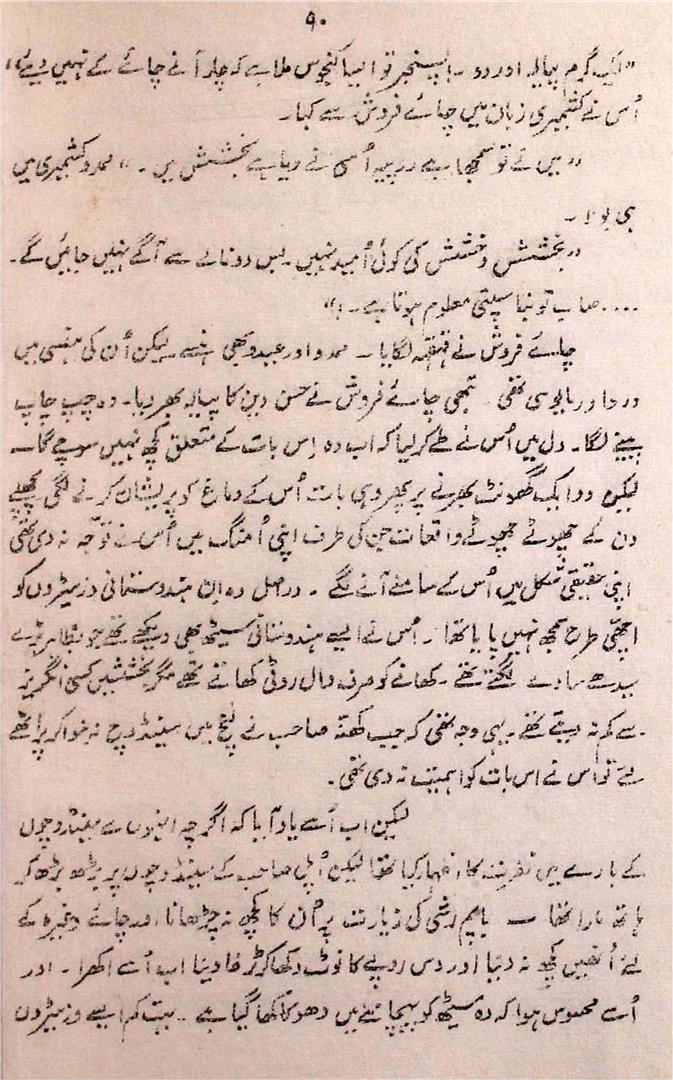 ۹۰
"ایک گرم پیالہ اور دو۔ پسنجر تو ایسا کنجوس ملا ہے کہ چار آنے چائے کے نہیں دیے"
اُس نے کشمیری زبان میں چائے فروش سے کہا۔
"میں نے تو سمجھا یہ روپیہ اُسی نے دیا ہے بخشش میں۔" ممدو کشمیری میں
ہی بولا۔
"بخشش وخشش کی کوئی اُمید نہیں۔ بس دو نالے سے آگے نہیں جائیں گے۔
.... صاب تو نیا سپتی معلوم ہوتا ہے۔!"
چائے فروش نے قہقہہ لگایا۔ ممدو اور عیدو بھی ہنسے۔ لیکن اُن کی ہنسی میں
درد اور مایوسی تھی۔ تبھی چائے فروش نے حسن دین کا پیالہ بھر دیا۔ وہ چپ چاپ
پینے لگا۔ دل میں اُس نے طے کر لیا کہ اب وہ اِس بات کے متعلق کچھ نہیں سوچے گا۔
لیکن دو ایک گھونٹ بھرنے پر پھر وہی بات اُس کے دماغ کو پریشان کرنے لگی پچھلے
دن کے چھوٹے چھوٹے واقعات جن کی طرف اپنی اُمنگ میں اُس نے توجّہ نہ دی تھی
اپنی حقیقی شکل میں اُس کے سامنے آنے لگے۔ دراصل وہ اِن ہندوستانی وزیٹروں کو
اچھّی طرح سمجھ نہیں پایا تھا۔ اُس نے ایسے ہندوستانی سیٹھ بھی دیکھے تھے جو بظاہر بڑے
سیدھے سادے لگتے تھے۔ کھانے کو صرف دال روٹی کھاتے تھے مگر بخششیں کسی انگریز
سے کم نہ دیتے تھے۔ یہی وجہ تھی کہ جب کھنّہ صاحب نے لنچ میں سینڈوچ نہ بنوا کر پراٹھے
لیے تو اُس نے اس بات کو اہمیت نہ دی تھی۔
لیکن اب اُسے یاد آیا کہ اگرچہ انہوں نے سینڈوچوں
کے بارے میں نفرت کا اظہار کیا تھا لیکن اُپل صاحب کے سینڈوچوں پر بڑھ بڑھ کر
ہاتھ مارا تھا۔ بام رشی کی زیارت پر اُن کا کچھ نہ چڑھانا اور چائے وغیرہ کے
لیے اُنھیں کچھ نہ دینا اور دس روپے کا نوٹ دکھا کر ٹرخا دینا اب اُسے اکھرا۔ اور
اُسے محسوس ہوا کہ وہ سیٹھ کو پہچاننے میں دھوکا کھا گیا ہے۔ بہت کم ایسے وزیٹروں